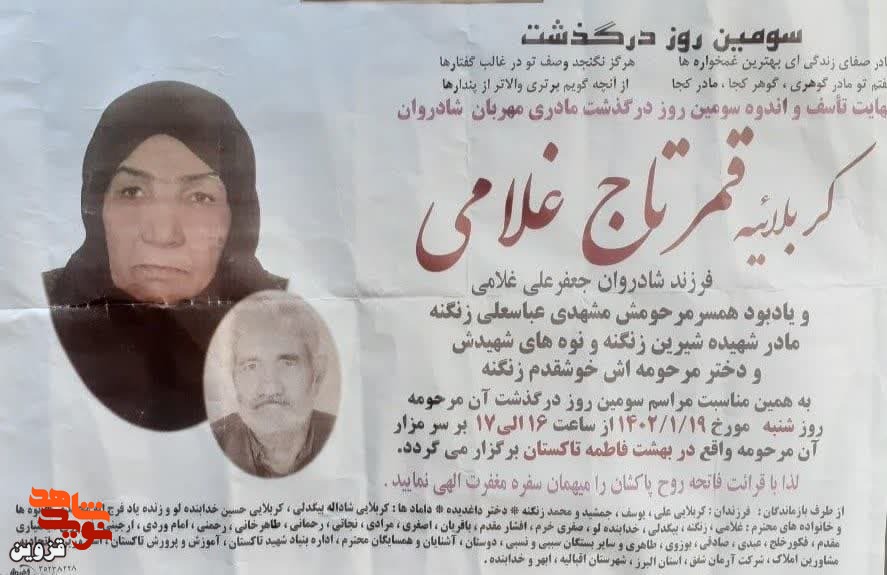 سومین روز درگذشت
مادر صفای زندگی ای بهترین غمخواره ها هرگز نگنجد وصف تو در غالب گفتارها
گفتم تو مادر گوهری ، گوهر کجا ، مادر کجا از آنچه گویم برتری والاتر از پندارها
نهایت تأسف و اندوه سومین روز درگذشت مادری مهربان شادروان
کربلائیه قمرتاج غلامی
فرزند شادروان جعفرعلی غلامی
و یادبود همسر مرحومش مشهدی عباسعلی زنگنه
مادر شهیده شیرین زنگنه و نوه های شهیدش
و دختر مرحومه اش خوشقدم زنگنه
به همین مناسبت مراسم سومین روز درگذشت آن مرحومه
روز شنبه مورخ ۱۴۰۲/۱/۱۹ از ساعت ۱۶ الی ۱۷ بر سر مزار
آن مرحومه واقع در بهشت فاطمه تاکستان برگزار می گردد.
لذا با قرائت فاتحه روح پاکشان را میهمان سفره مغفرت الهی نمایید .
از طرف بازماندگان : فرزندان : کربلایی علی ، یوسف ، جمشید و محمد زنگنه * دختر داغدیده * داماد ها : کربلایی شاداله بیگدلی ، کربلایی حسین خدابنده لو و زنده یاد
و خانواده های محترم : غلامی ، زنگنه ، بیگدلی ، خدابنده لو ، صفری خرم ، افشار مقدم ، باقریان ، اصغری ، مرادی ، نجاتی ، رحمانی ، طاهرخانی ، رحمنی ، امام وردی ،
مقدم ، فکور خلج ، عبدی ، صادقی ، یوزوی ، طاهری و سایر بستگان سببی و نسبی ، دوستان ، آشنایان و همسایگان محترم ، اداره بنیاد شهید تاکستان ، آموزش و پرورش تاکستان ،
مشاورین املاک ، شرکت آرمان شفق ، استان البرز ، شهرستان اقبالیه ، ابهر و خدابنده .
نوید شاهد
قزوین
۳۵۲۳۸۲۲۸